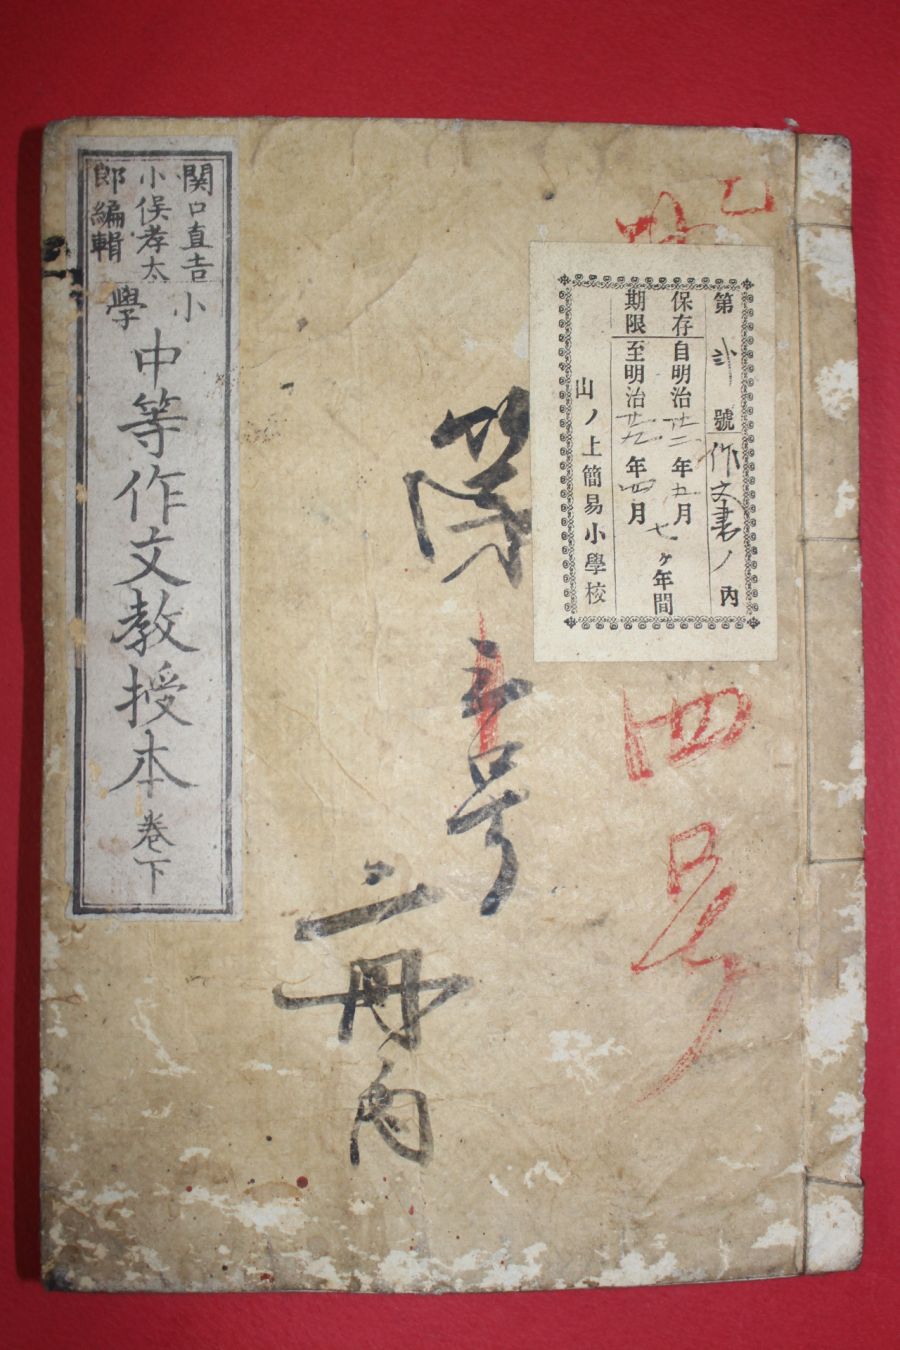 第弐號
作文書ノ内
保存
期限
自明治廿二年五月
至明治廿九年四月
七ヶ年間
山ノ上簡易小學校
四号
第三号
二冊内
関口直吉
小俣孝太
郎編輯
小學
中等作文教授本巻下